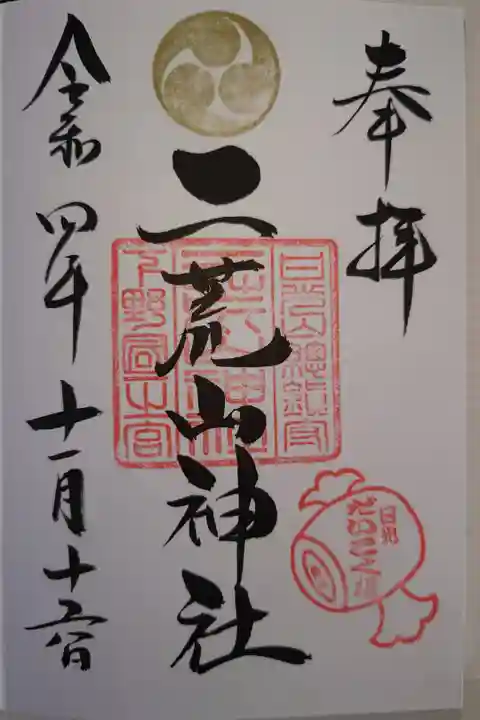 奉拝
二荒山神社
日光山總鎮守
下野國一之宮
日光
だいこく様
令和四年十一月十六日